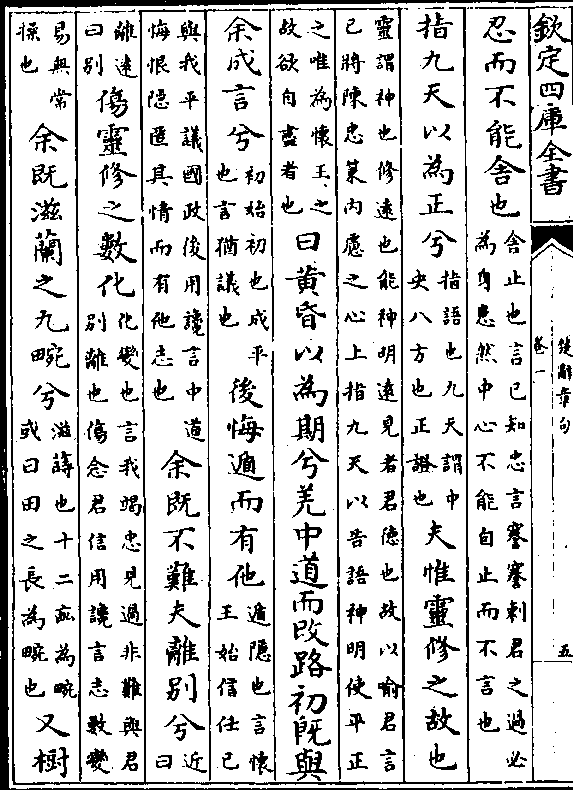 欽定四庫全書
楚辭章句
卷一
五
忍而不能舍也舍止也言已知忠言謇謇刺君之過必為身患然中心不能自止而不言也
指九天以為正兮指語也九天謂中央八方也正證也夫惟靈修之故也
靈謂神也修遠也能神明遠見者君徳也故以喻君言已將陳忠䇿内慮之心上指九天以告語神明使平正
之唯為懷王之故欲自盡者也曰黄昏以為期兮羌中道而改路初既與
余成言兮初始初也成平也言猶議也後悔遁而有他遁隱也言懷王始信任已
與我平議國政後用讒言中道悔恨隱匿其情而有他志也余既不難夫離别兮近曰
離逺曰别傷靈修之數化化變也言我竭忠見過非難與君别離也傷念君信用讒言志數變
易無常操也余既滋蘭之九畹兮滋蒔也十二畝為畹或曰田之長為畹也又樹